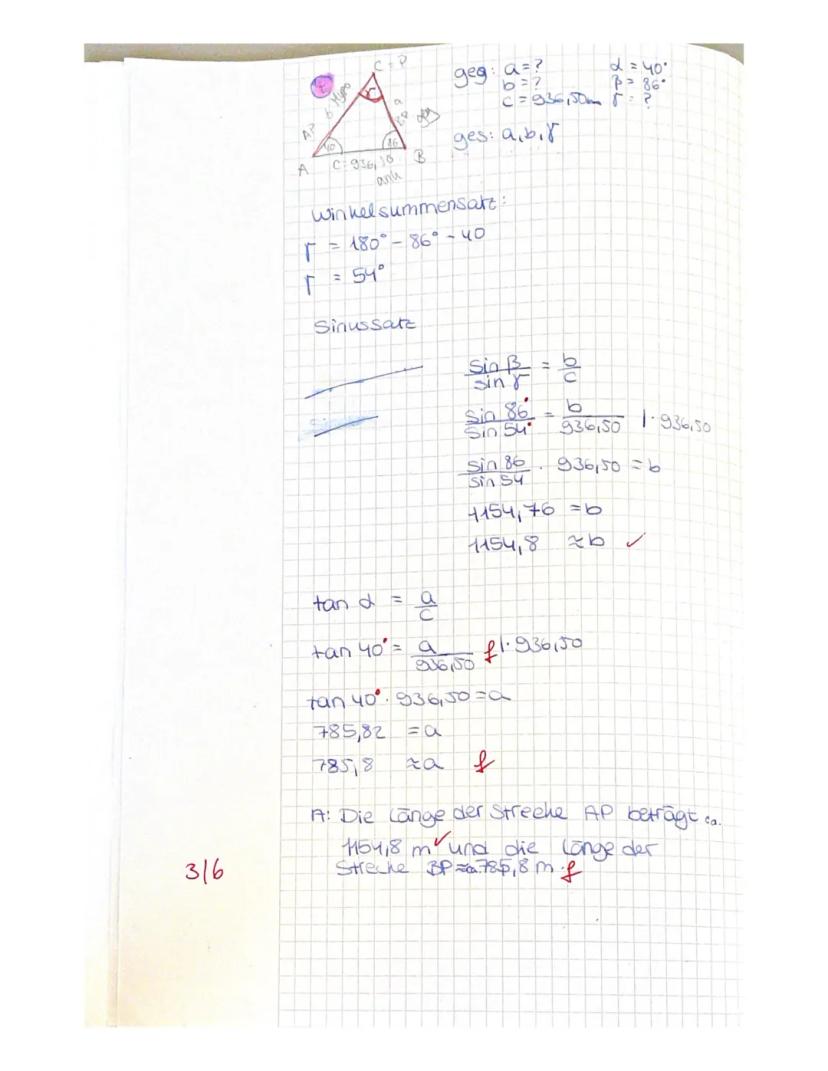 C = P
geg: a = ? α = 40°
b = ? β = 86°
c = 936,50m γ = ?
ges: a, b, γ
b Hypo
a
γ
A?
40
86
A
B
C: 936,50
ank
Winkelsummensatz:
γ = 180° - 86° - 40
γ = 54°
Sinussatz
sin β / sin γ = b / c
sin 86° / sin 54° = b / 936,50 | · 936,50
sin 86 / sin 54 · 936,50 = b
1154,76 = b
1154,8 ≈ b ✓
tan α = a / c
tan 40° = a / 936,50 f | · 936,50
tan 40° · 936,50 = a
785,82 = a
785,8 ≈ a f
A: Die Länge der Strecke AP beträgt ca.
1154,8 m ✓ und die Länge der
Strecke BP ≈ 785,8 m f
3/6